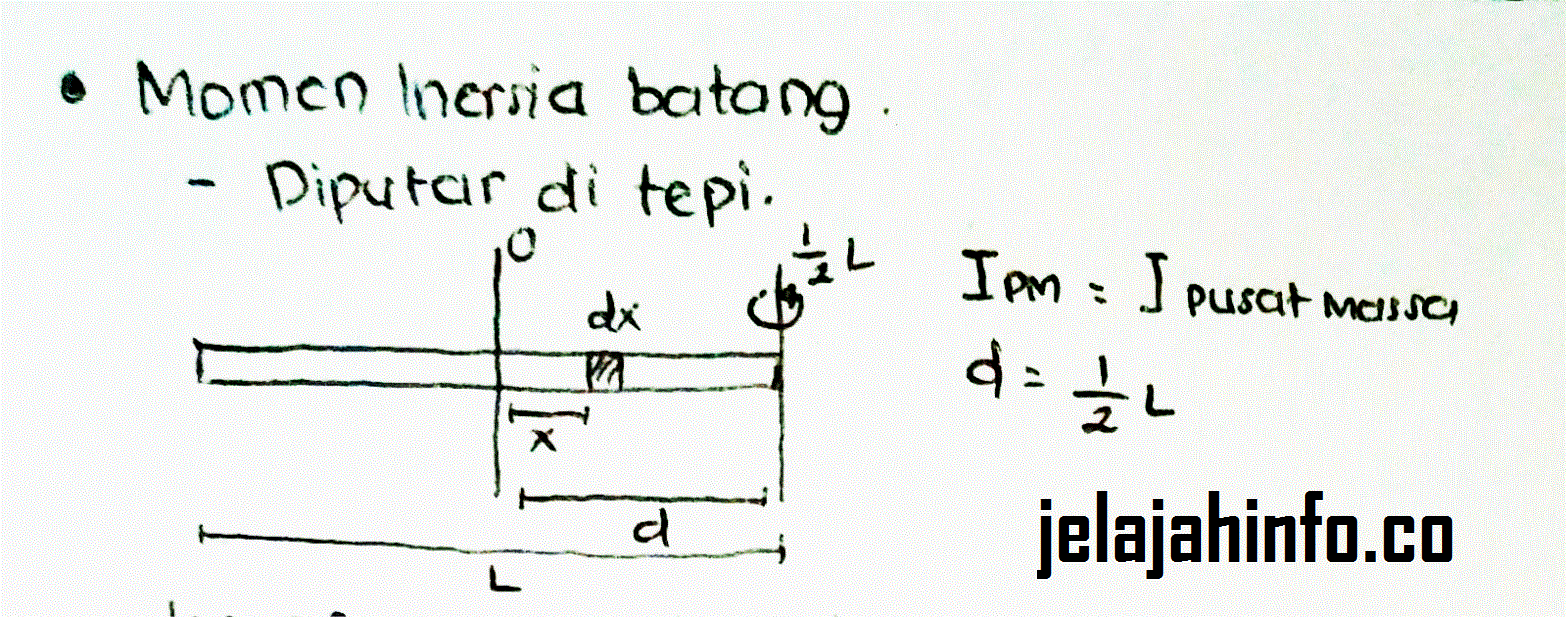 • Momen Inersia batang.
- Diputar di tepi.
O
1/2 L
dx
x
d
L
I PM = I pusat massa
d = 1/2 L
jelajahinfo.co